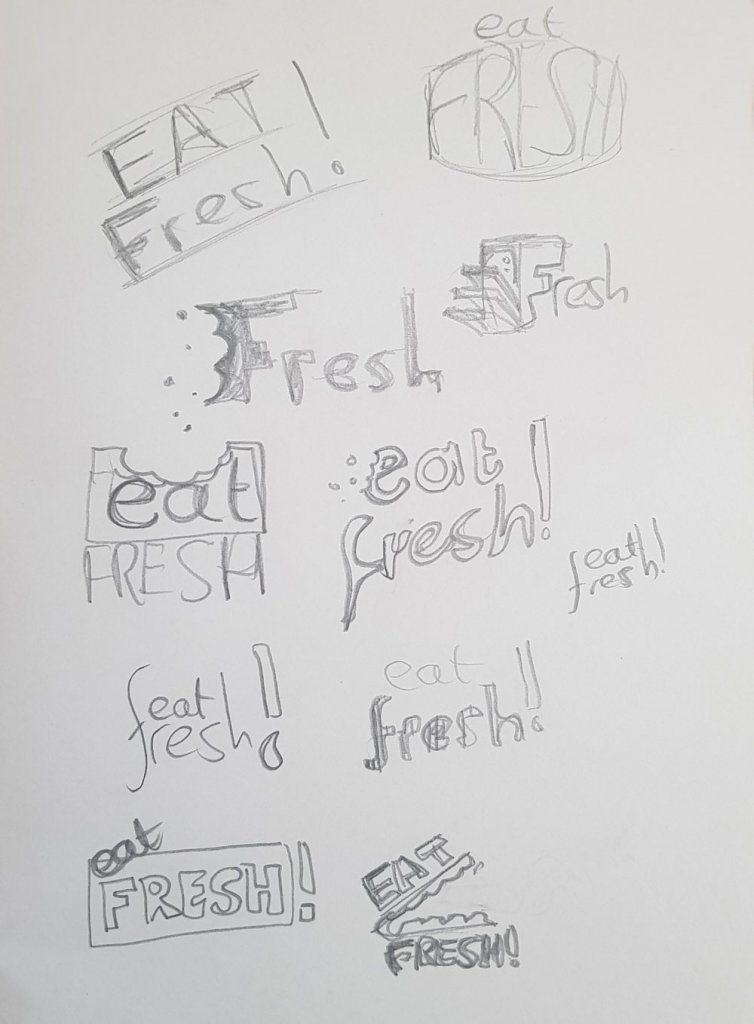 EAT!
Fresh!
eat
FRESH
Fresh
Fresh
eat
FRESH
eat
fresh!
eat
fresh!
eat
fresh!
eat
fresh!
eat
FRESH!
EAT
FRESH!